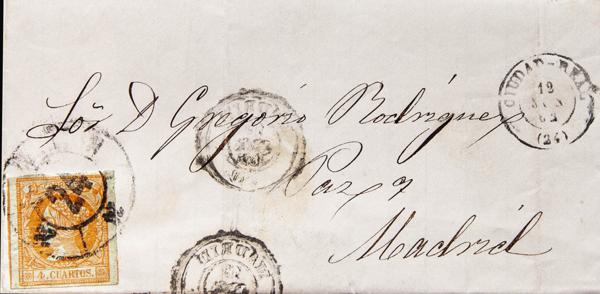 Sōr D Gregorio Rodriguez
Paz 7
Madrid
CIUDAD-REAL
12
(24)
4 CUARTOS.